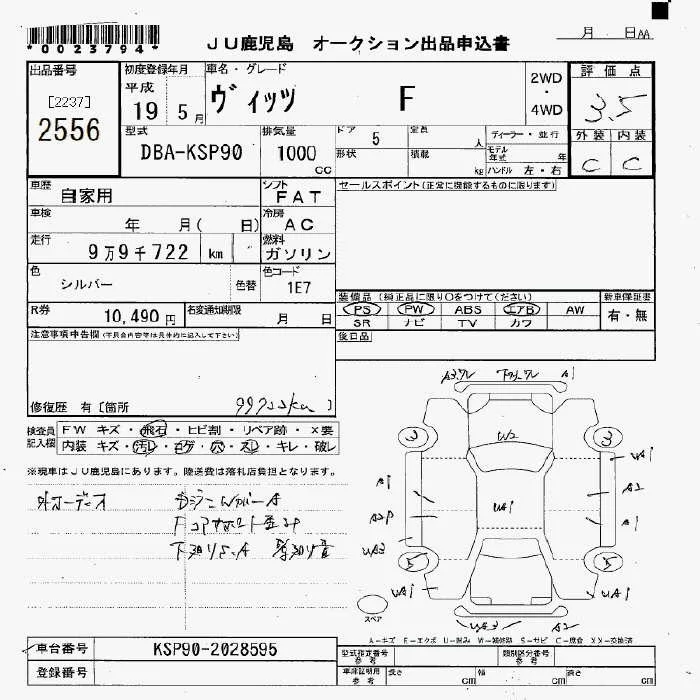 *0023794*
JU鹿児島 オークション出品申込書
月 日AA
出品番号
[2237]
2556
初度登録年月
平成
19 5月
車名・グレード
ヴィッツ F
2WD
・
4WD
評価点
3.5
外装 内装
C C
型式
DBA-KSP90
排気量
1000
cc
ドア 5
定員 人
形状
積載 kg
ディーラー・並行
モデル年式 年
ハンドル 左・右
車歴
自家用
シフト
FAT
セールスポイント(正常に機能するものに限ります)
車検
年 月( 日)
冷房
AC
走行
9万9千722 km
燃料
ガソリン
色
シルバー
色替
色コード
1E7
装備品(純正品に限り○をつけてください)
PS PW ABS エアB AW
SR ナビ TV カワ
新車保証書
有・無
R券
10,490円
名変通知期限
月 日
後日品
注意事項申告欄(不具合内容等は具体的に記入して下さい)
修復歴 有[箇所 ]
検査員記入欄
FW キズ・飛石・ヒビ割・リペア跡・×要
内装 キズ・汚レ・コゲ・穴・スレ・キレ・破レ
※現車はJU鹿児島にあります。陸送費は落札店負担となります。
外オーディオ
A3 A1
3 3
W2
A1 UA1 A2
UA1
A1
UA3
5 5
UA1 UA1
A2
スペア
A-キズ E-エクボ U-凹み W-補修跡 S-サビ C-腐食 XX-交換済
車台番号 KSP90-2028595
登録番号
型式指定番号参考
類別区分番号参考
車庫証明用参考
長さ cm
幅 cm
高さ cm